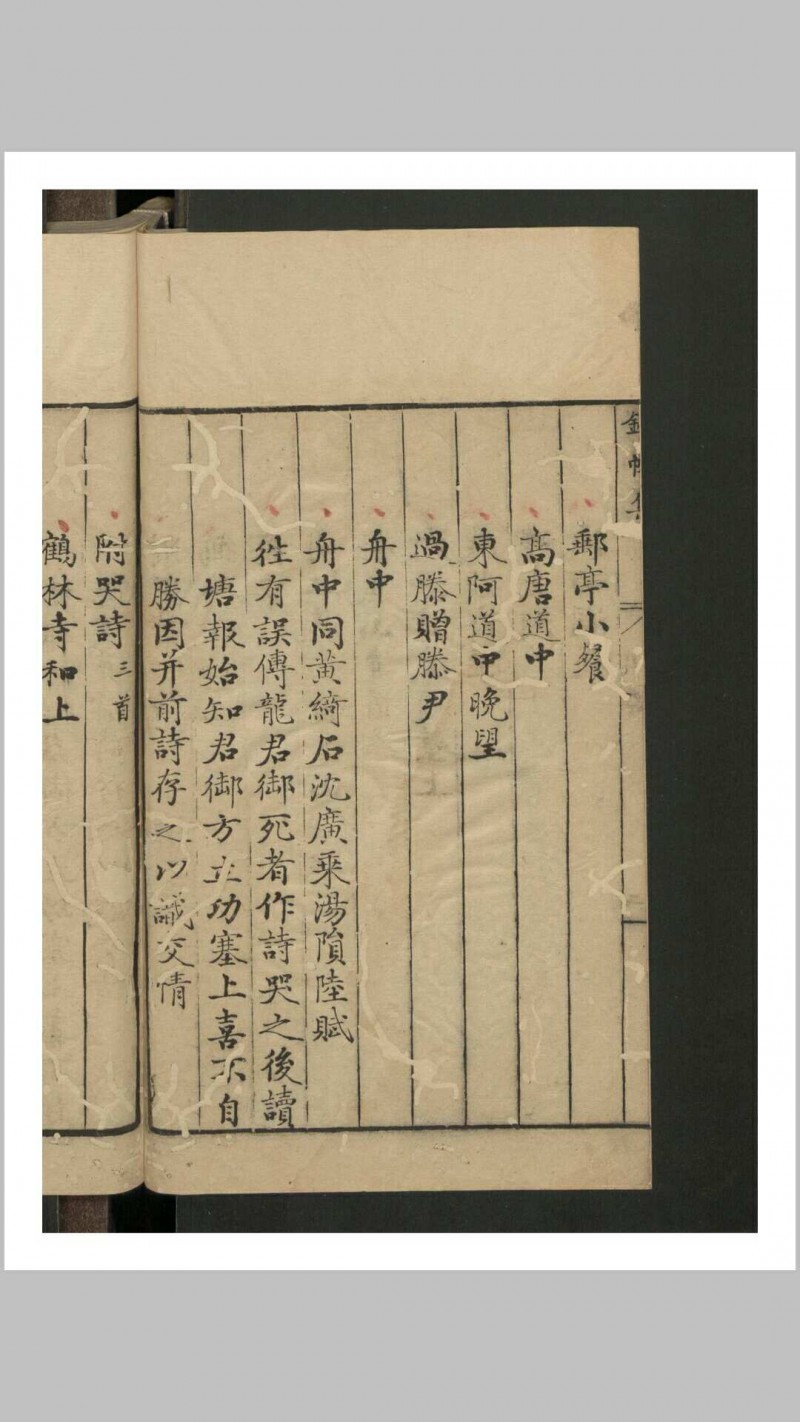 郵亭小餐
高唐道中
東阿道中晚望
過滕贈滕尹
舟中
舟中同黃綺石沈廣乘湯隕陸賦
徃有誤傳龍君御死者作詩哭之後讀
塘報始知君御方立功塞上喜不自
勝因并前詩存之以識交情
附哭詩三首
鶴林寺和上